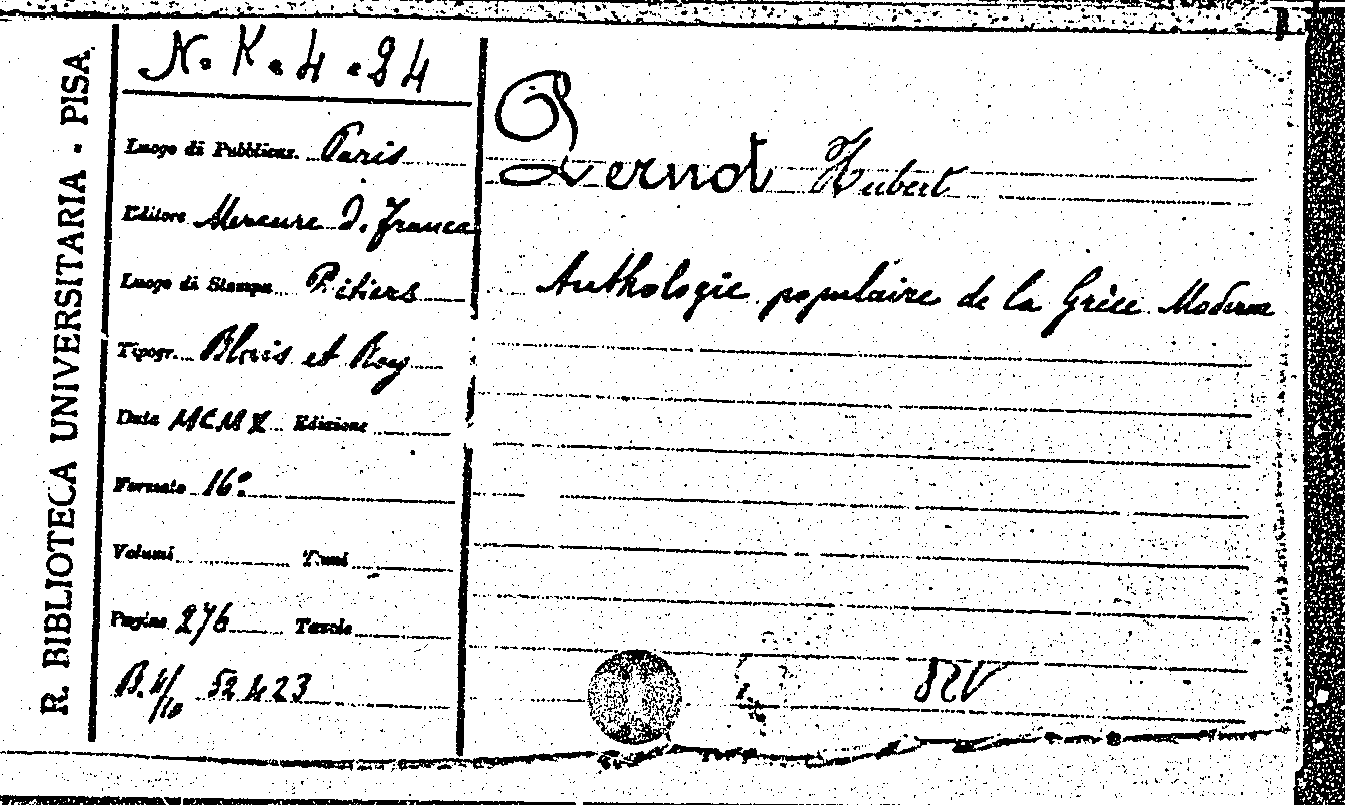 R. BIBLIOTECA UNIVERSITARIA - PISA
N. K. 4. 24
Luogo di Pubblicaz. Paris
Editore Mercure D. France
Luogo di Stampa Poitiers
Tipogr. Blais et Roy
Data MCMX Edizione
Formato 16°
Volumi Tomi
Pagine 276 Tavole
52423
Pernot Hubert
Anthologie populaire de la Grèce Moderne